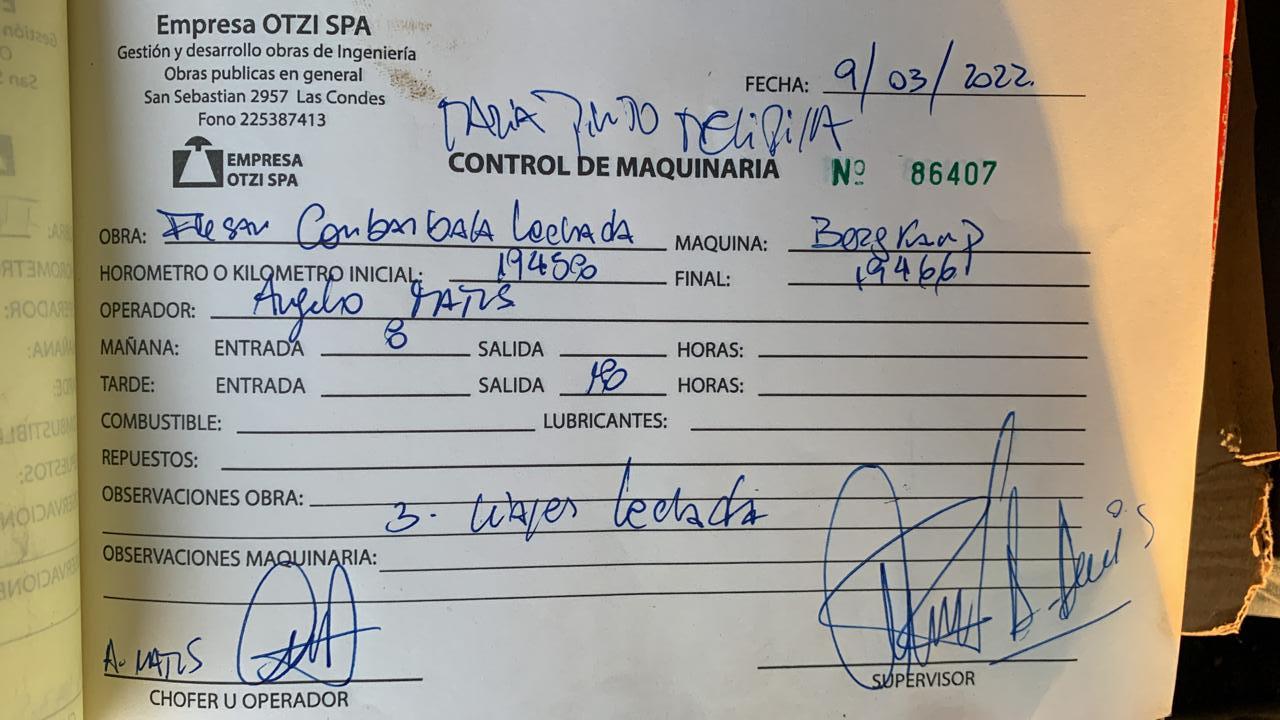 Empresa OTZI SPA
Gestión y desarrollo obras de Ingeniería
Obras publicas en general
San Sebastian 2957 Las Condes
Fono 225387413
FECHA: 9/03/2022.
MARIA PINTO MELIPILLA
EMPRESA
OTZI SPA
CONTROL DE MAQUINARIA Nº 86407
OBRA: Combarbala Lechada MAQUINA: Bergkamp
HOROMETRO O KILOMETRO INICIAL: FINAL: 19466
OPERADOR: Angelo
MAÑANA: ENTRADA 8 SALIDA HORAS:
TARDE: ENTRADA SALIDA 18 HORAS:
COMBUSTIBLE: LUBRICANTES:
REPUESTOS:
OBSERVACIONES OBRA: 3- viajes lechada
OBSERVACIONES MAQUINARIA:
A.
CHOFER U OPERADOR
SUPERVISOR